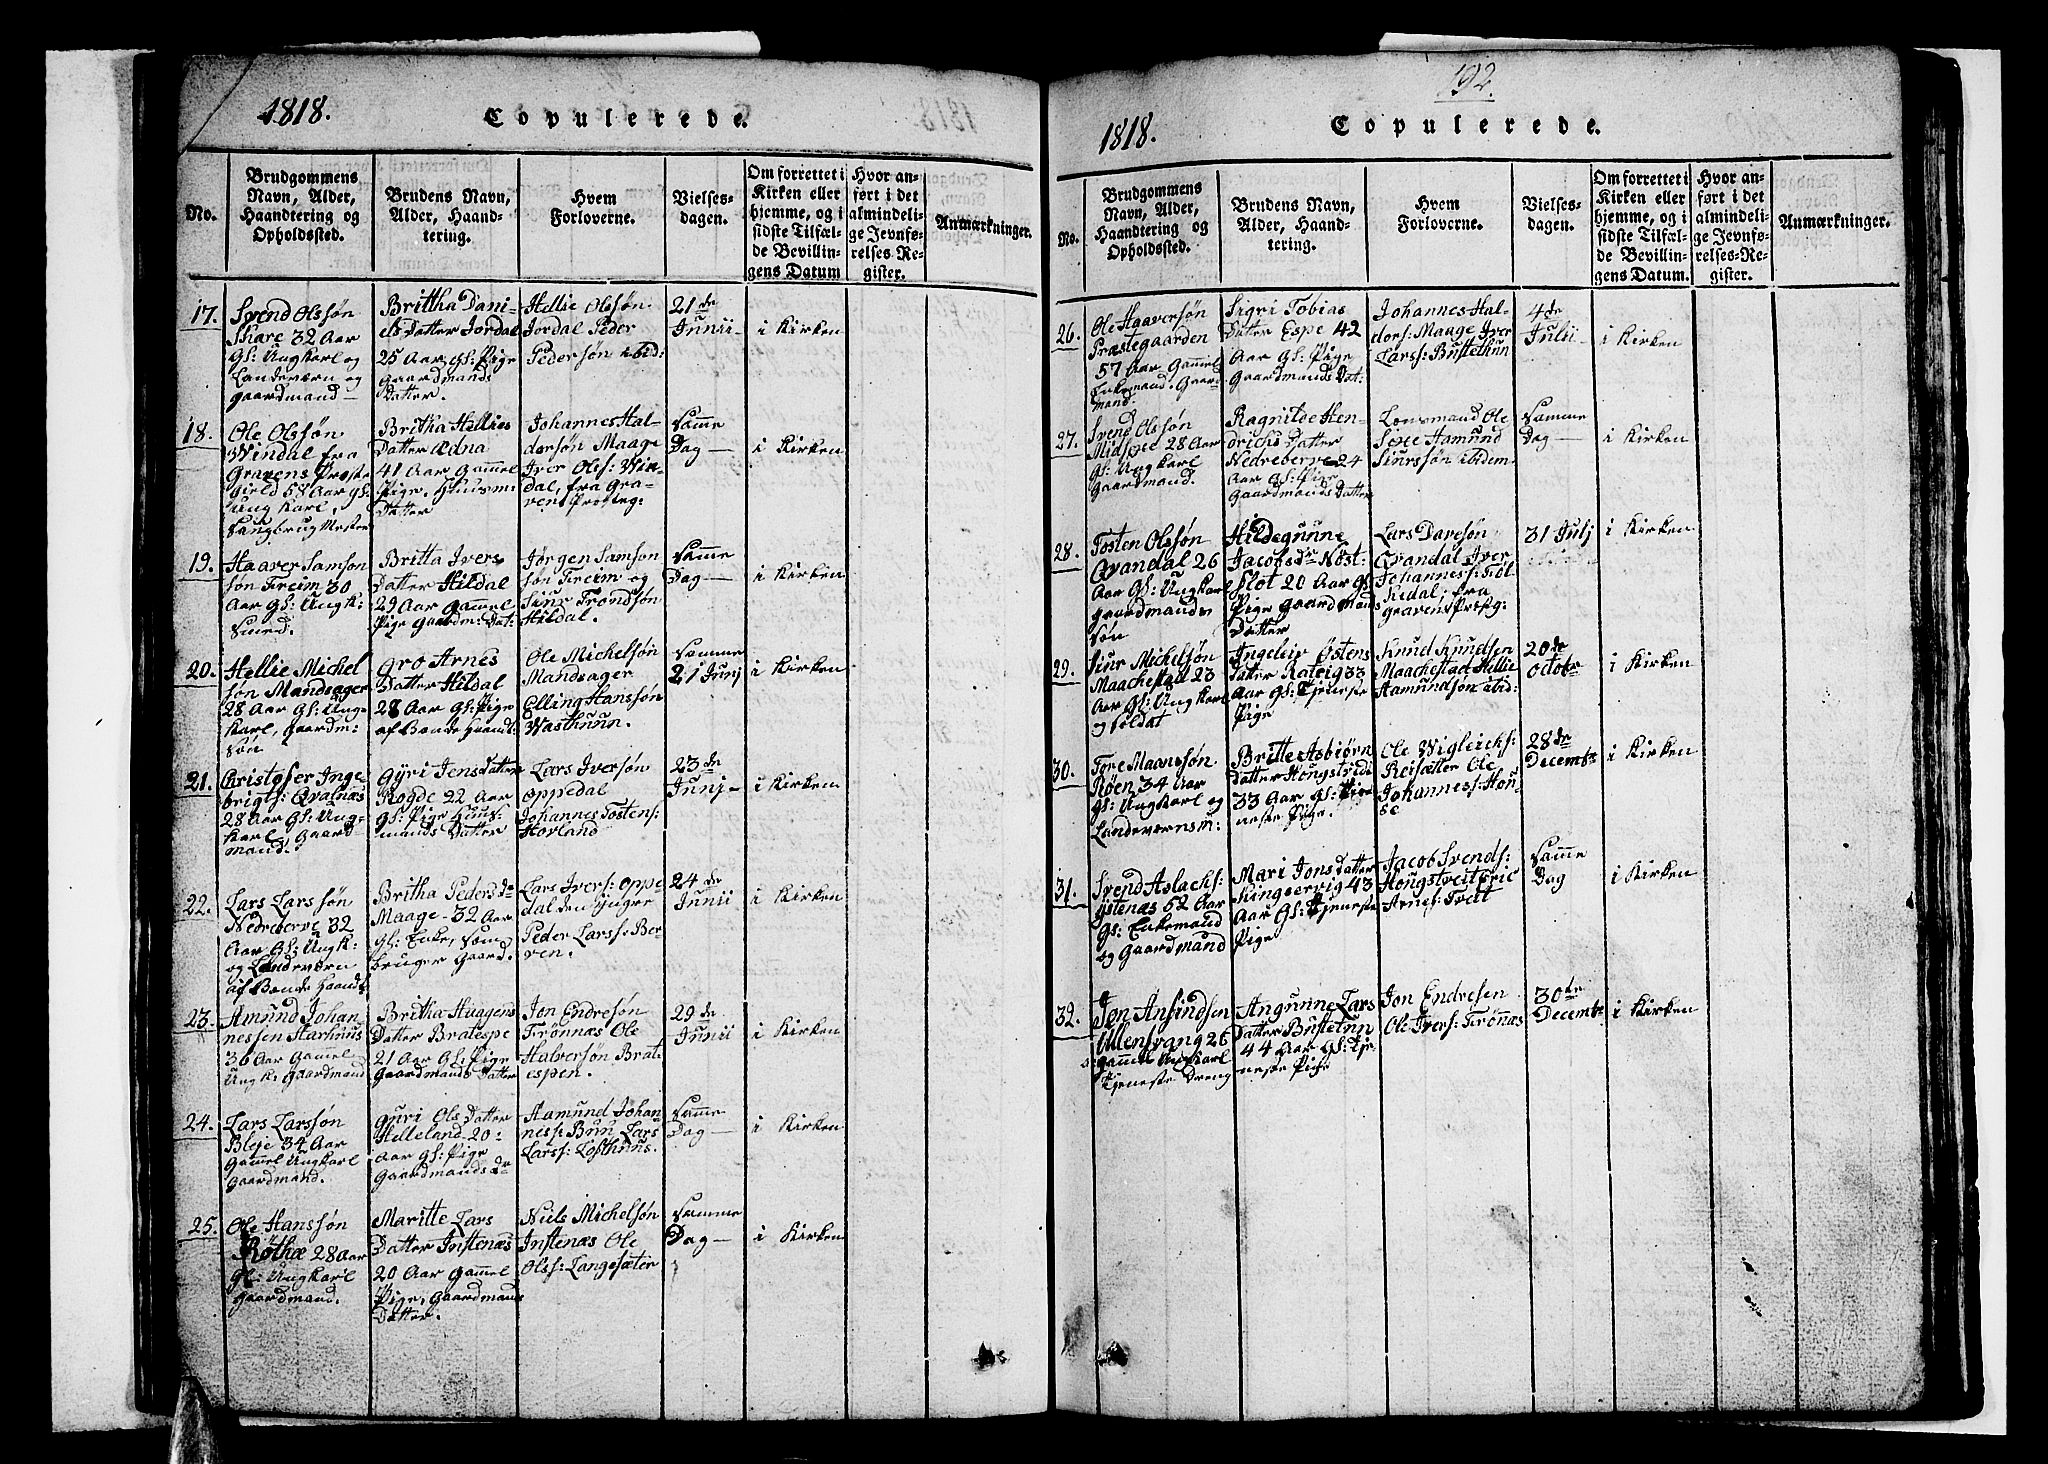 1818.
Copulerede.
No.
Brudgommens
Navn, Alder,
Haandtering og
Opholdssted.
Brudens Navn,
Alder, Haand-
tering.
Hvem
Forloverne.
Vielses-
dagen.
Om forrettet i
Kirken eller
hjemme, og i
sidste Tilfæl-
de Bevillin-
gens Datum
Hvor an-
ført i det
almindeli-
ge Jevnfø-
relses-Re-
gister.
Anmærkninger.
17.
Svend Olssøn
Skare 32 Aar
Gl: Ungkarl og
Landeværn og
gaardmand
Brittha Dani-
els Datter Jordal
25 Aar Gl: Pige
Gaardmands
Datter.
Hellie Olssøn
Jordal Peder
Pedersøn ibid:
21de
Junii
i Kirken
18.
Ole Olssøn
Windal fra
Gravens Præste
gield 58 Aar Gl:
Ung Karl,
Britha Hellies
Datter Ædna
41 Aar Gammel
Pige. Huusm:
Datter
Johannes Hal-
dersøn Maage
Iver Olss: Win-
dal, fra Gra-
vens Præsteg:
Samme
Dag
i Kirken
19.
Haaver Samson
søn Freim 30
Aar Gl: Ungk:
Smed.
Britta Ivers
Datter Hildal
29 Aar Gammel
Pige gaardm: Dat:
Jørgen Samson
søn Freim og
Siur Trondsøn
Hildal.
Samme
Dag
i Kirken
20.
Hellie Michel
søn Mandsager
28 Aar Gl: Ung-
Karl, Gaardm-
søn
Gro Arnes
Datter Hildal
28 Aar Gl: Pige
af Bonde Haand:
Ole Michelsøn
Mandsager
Elling Hanssøn
Wasthuun.
Samme
21 Junj
i Kirken
21.
Christofer Inge
brigts: Qvalnæs
28 Aar Gl: Ung-
Karl, Gaard
mand.
Gÿri Jens Datter
Rogde 22 Aar
Gl: Pige Huus-
mands Datter
Lars Iversøn
Oppedal
Johannes Tostens:
Horland
23de
Junj
i Kirken
22.
Lars Larssøn
Nedreberve 32
Aar Gl: Ungk:
og Landeværn
af Bonde Haand
Britha Peders dr
Maage 32 Aar
Gl: Enke, som
bruger Gaard.
Lars Ivers: Oppe
dal den ÿngre
Peder Larss: Ber-
ven.
24de
Junii
i Kirken
23.
Amund Johan
nessen Starhuus
36 Aar Gammel
Ungk: Gaardmand
Britha Huggens
Datter Bratespe
21 Aar Gl: Pige
Gaardmands Datter
Jon Endresøn
Trønnæs Ole
Halversøn Brat-
espen.
29de
Junii
i Kirken
24.
Lars Larssøn
Bleje 34 Aar
Gammel Ungkarl
Gaardmand.
Guri Ols Datter
Helleland 20
Aar Gl: Pige
Gaardmands dr
Aamund Johan-
ness: Bun Lars
Larss: Lofthuus.
Samme
Dag
i Kirken
25.
Ole Hanssøn
Røthe 28 Aar
Gl: Ungkarl
Gaardmand.
Maritte Lars
Datter Instenæs
20 Aar Gammel
Pige, Gaardmands
Datter.
Niels Michelsøn
Instenæs Ole
Olss: Langesæter
Samme
Dag
i Kirken
192.
1818.
Copulerede.
No.
Brudgommens
Navn, Alder,
Haandtering og
Opholdssted.
Brudens Navn,
Alder, Haand-
tering.
Hvem
Forloverne.
Vielses-
dagen.
Om forrettet i
Kirken eller
hjemme, og i
sidste Tilfæl-
de Bevillin-
gens Datum.
Hvor an-
ført i det
almindeli-
ge Jevnfø-
relses-Re-
gister.
Anmærkninger.
26.
Ole Haaversøn
Præstegaarden
57 Aar Gammel
Enkemand. Gaard
mand.
Sigri Tobias
Datter Espe 42
Aar Gl: Pige
Gaardmands Dat-
Johannes Hal-
dors: Maage Iver
Larss: Bustethun
4de
Julii
i Kirken
27.
Svend Olssøn
Midspee 28 Aar
Gl: Ungkarl
Gaardmand.
Ragnilde Hen-
drichs Datter
Nedreberve 24
Aar Gl: Pige
Gaardmands Datter
Lensmand Ole
Sexe Aamund
Siurssøn ibidem
Samme
Dag
i Kirken
28.
Tosten Olssøn
Qvandal 26
Aar Gl: Ungkar
gaardmands
søn
Hildegunne
Jacobs dr Nøst-
flot 20 Aar Gl:
Pige Gaardmands
Datter
Lars Davesøn
Qvandal Iver
Johanness: Føl-
Kidal, fra
Gravens Præstg:
31 Julj
i Kirken
29.
Siur Michelsøn
Maachestad 23
Aar Gl: Ungkarl
og Soldat
Ingeleiv Østens
datter Rateig 33
Aar Gl: Tjeneste
Pige
Knud Knudsen
Maachestad Hellie
Aamundsøn ibid:
20de
Octobr
i Kirken
30.
Tore Maansøn
Røen 34 Aar
Gl: Ungkarl og
Landeværnsm:
Britte Asbiørn
datter Hougstvedt
33 Aar Gl: Tje
neste Pige.
Ole Wigleicks:
Reisæter Ole
Johanness: Hou-
se
28de
Decembr
i Kirken
31.
Svend Aslachs:
Ystenæs 52 Aar
Gl: Enkemand
og Gaardmand
Mari Jons datter
Kingservig 43
Aar Gl: Tjeneste
Pige
Jacob Svends:
Hougstveit Eric
Arnes: Tveit
Samme
Dag
i Kirken
32.
Jon Ansindsen
Ullensvang 26
Gammel Ungkarl
Tjeneste Dreng
Angunne Lars
datter Bustetun
44 Aar Gl: Tje
neste Pige
Jon Endresen
Ole Ivers: Trønæs
30te
Decembr
i Kirken